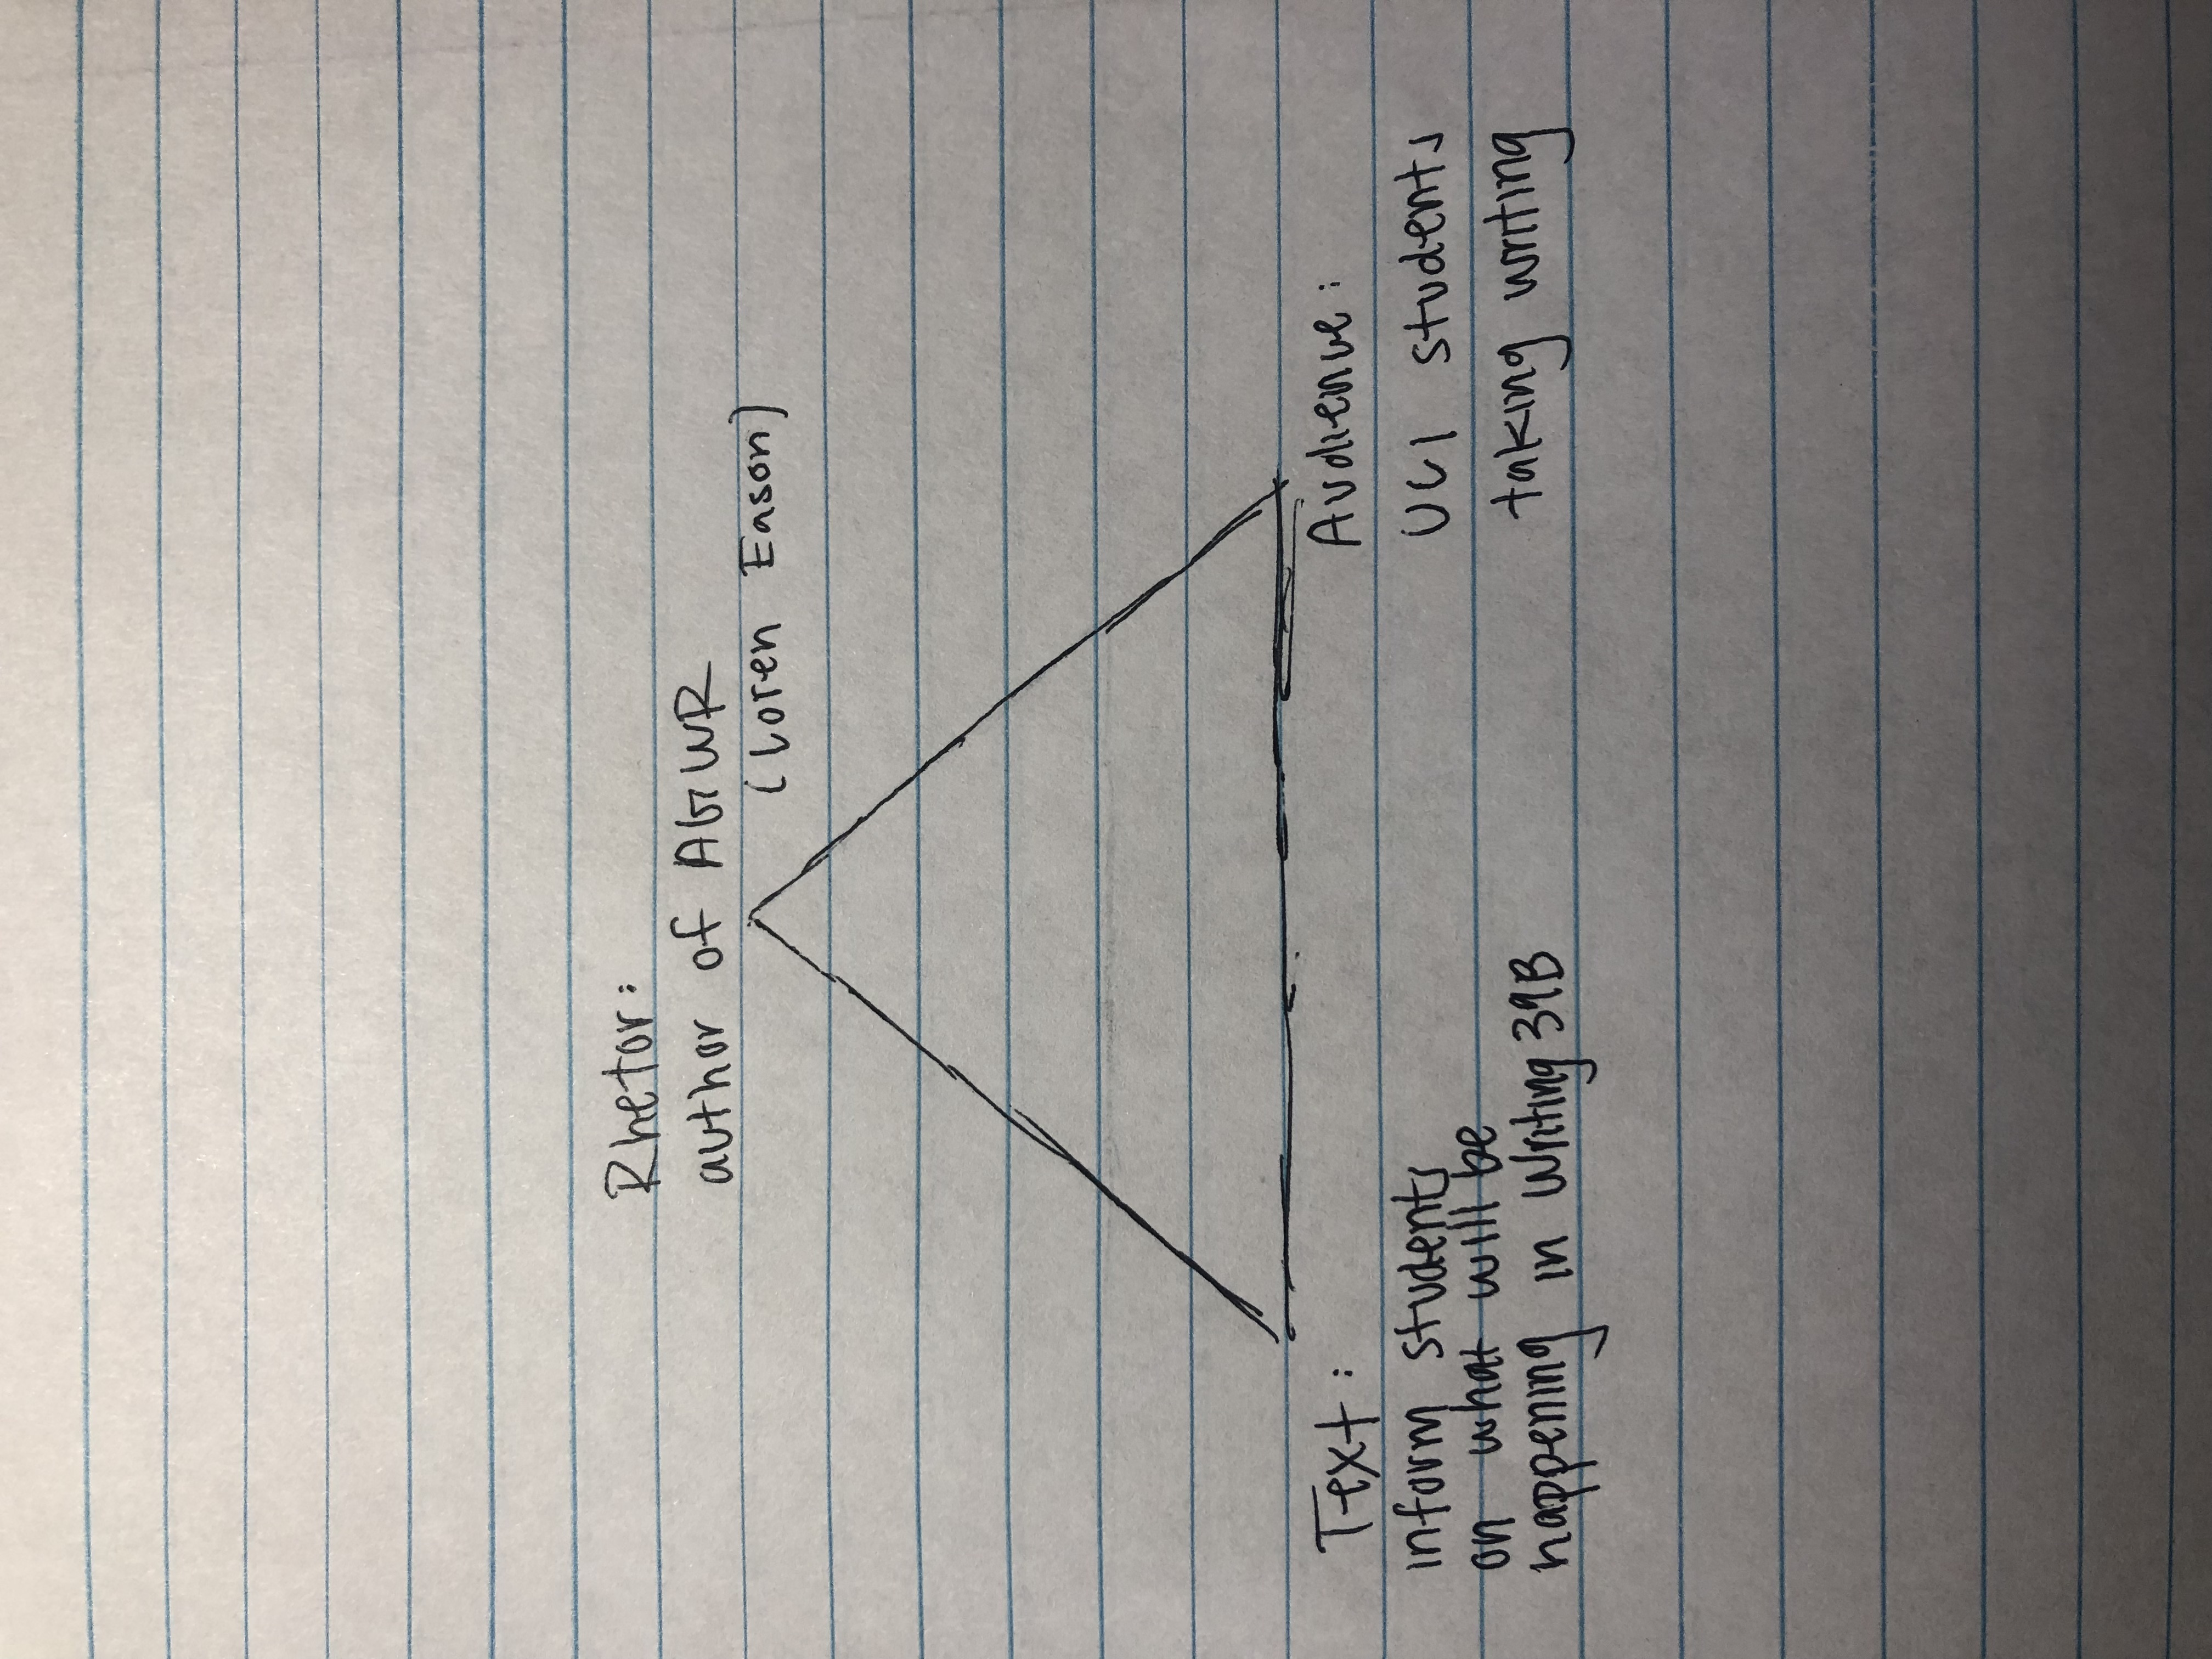 Rhetor:
author of AGWR
(Loren Eason)
Text:
inform students
on what will be
happening in Writing 39B
Audience:
UCI students
taking writing